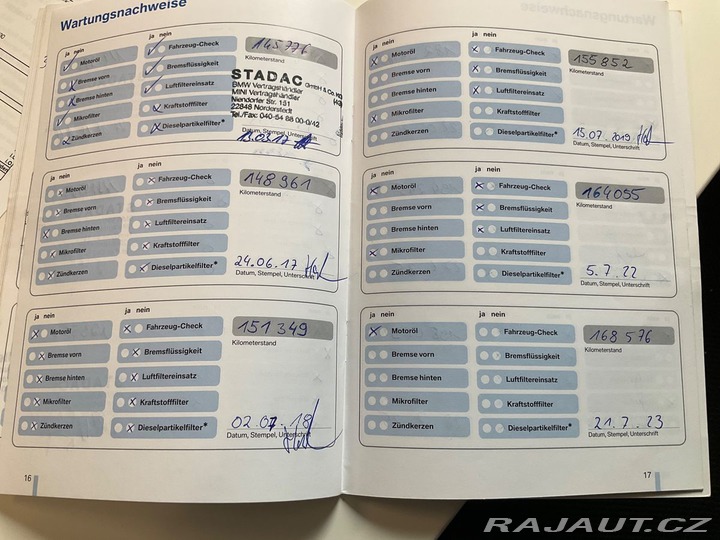 Wartungsnachweise
ja nein
ja nein
Motoröl
Bremse vorn
Bremse hinten
Mikrofilter
Zündkerzen
Fahrzeug-Check
Bremsflüssigkeit
Luftfiltereinsatz
Kraftstofffilter
Dieselpartikelfilter*
145776
Kilometerstand
STADAC GmbH & Co. KG
BMW Vertragshändler
MINI Vertragshändler
Niendorfer Str. 151
22848 Norderstedt
Tel./Fax: 040-54 88 00-0/42
Datum, Stempel, Unterschrift
13.03.17
ja nein
ja nein
Motoröl
Bremse vorn
Bremse hinten
Mikrofilter
Zündkerzen
Fahrzeug-Check
Bremsflüssigkeit
Luftfiltereinsatz
Kraftstofffilter
Dieselpartikelfilter*
148961
Kilometerstand
24.06.17
Datum, Stempel, Unterschrift
ja nein
ja nein
Motoröl
Bremse vorn
Bremse hinten
Mikrofilter
Zündkerzen
Fahrzeug-Check
Bremsflüssigkeit
Luftfiltereinsatz
Kraftstofffilter
Dieselpartikelfilter*
151349
Kilometerstand
02.07.18
Datum, Stempel, Unterschrift
16
ja nein
ja nein
Motoröl
Bremse vorn
Bremse hinten
Mikrofilter
Zündkerzen
Fahrzeug-Check
Bremsflüssigkeit
Luftfiltereinsatz
Kraftstofffilter
Dieselpartikelfilter*
155852
Kilometerstand
15.07.2019
Datum, Stempel, Unterschrift
ja nein
ja nein
Motoröl
Bremse vorn
Bremse hinten
Mikrofilter
Zündkerzen
Fahrzeug-Check
Bremsflüssigkeit
Luftfiltereinsatz
Kraftstofffilter
Dieselpartikelfilter*
164055
Kilometerstand
5.7.22
Datum, Stempel, Unterschrift
ja nein
ja nein
Motoröl
Bremse vorn
Bremse hinten
Mikrofilter
Zündkerzen
Fahrzeug-Check
Bremsflüssigkeit
Luftfiltereinsatz
Kraftstofffilter
Dieselpartikelfilter*
168576
Kilometerstand
21.7.23
Datum, Stempel, Unterschrift
17
RAJAUT.CZ